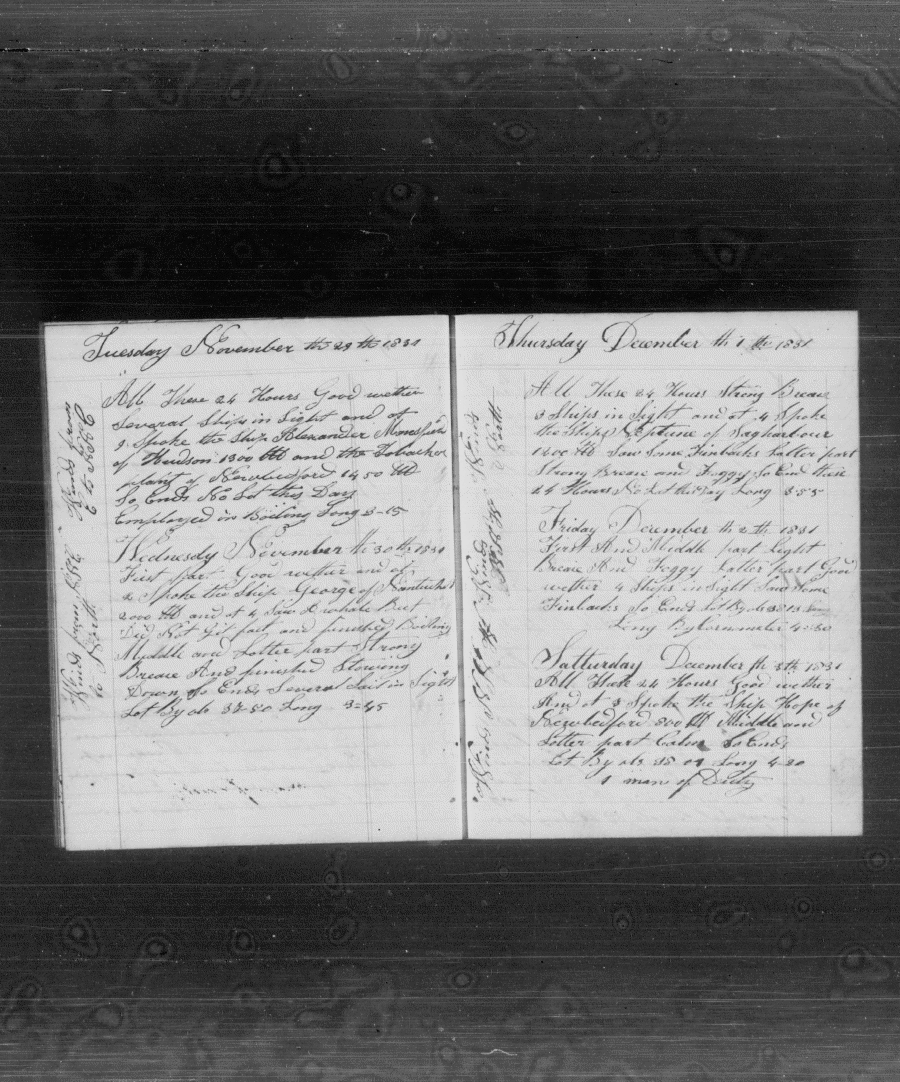 Tuesday November th 29 th 1831
All These 24 Hours Good wether
Several Ships in Sight and at
spoke the Ship Alexander Mansfield
of Hudson 1300 bbl and the Tobacker
plant of Newbedford 1450 bbl
So Ends No Lot this Day
Employed in Boiling Long 3-15
Wednesdy November th 30 th 1831
First part Good wether and at
2 Spoke the Ship George of Nantucket
2000 bbl and at 4 Saw a whale But
Did Not Git fast and finished Boiling
Middle and Latter part Strong
Breaze And finished Stowing
Down So Ends Several Sail in Sight
Lot By ob 37-50 Long 3-45
Winds from
E to
Winds from
to North
Thursday December th 1 th 1831
All These 24 Hours Strong Breaze
3 Ships in Sight and at 4 Spoke
the Ship Neptune of Sagharbour
1400 bbl Saw Some Finbacks Latter part
Strong Breaze and Foggy So End these
24 Hours No Lot this Day Long 3-55
Friday December th 2 th 1831
First And Middle part Light
Breaze And Foggy Latter part Good
wether 4 Ships in Sight Saw Some
Finbacks So Ends Lot By ob 38-13
Long By Cornometer 4-30
Satturday December th 3 th 1831
All These 24 Hours Good wether
And at 3 Spoke the Ship Hope of
Newbedford 800 bbl Middle and
Latter part Calm So Ends
Lot By ob 38 01 Long 4-20
1 man of Duty
Winds
Winds
Winds